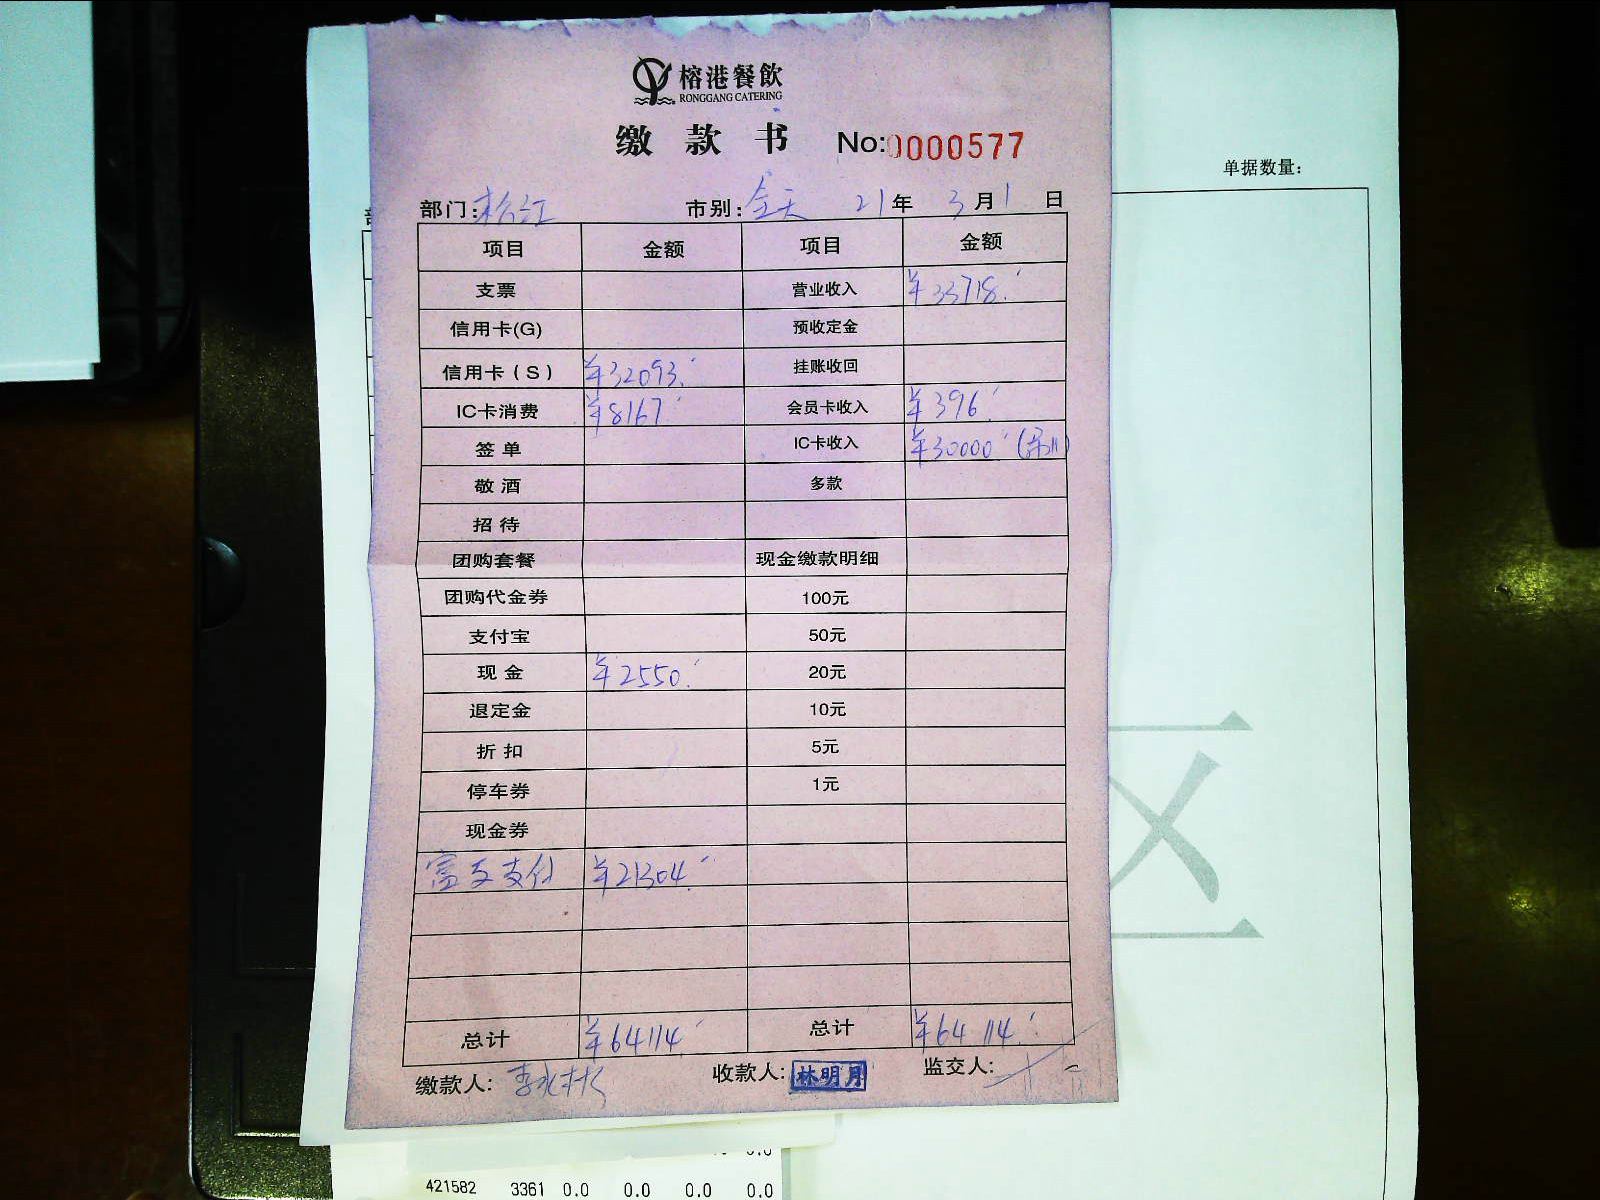 榕港餐飲
RONGGANG CATERING
缴款书 No:0000577
单据数量:
部门:松江 市别:全天 21年 3月1日
项目 金额 项目 金额
支票 营业收入 ¥33718.
信用卡(G) 预收定金
信用卡(S) ¥32093. 挂账收回
IC卡消费 ¥8167 会员卡收入 ¥396
签单 IC卡收入 ¥30000
敬酒 多款
招待
团购套餐 现金缴款明细
团购代金券 100元
支付宝 50元
现金 ¥2550. 20元
退定金 10元
折扣 5元
停车券 1元
现金券
富友支付 ¥21304
总计 ¥64114 总计 ¥64114.
缴款人: 收款人:林明月 监交人:
421582 3361 0.0 0.0 0.0 0.0
区